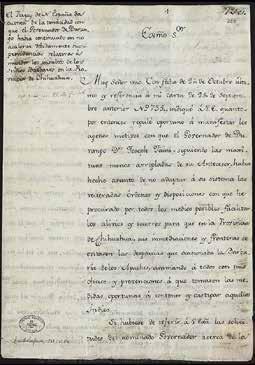 1
El Virrey de N. España da
cuenta de la tenacidad con
que el Governador de Duran-
go había continuado en no
acelerar debidamente sus
providencias relativas á
impedir los insultos de los
Indios Apaches en la Pro-
vincia de Chihuahua.
Exmo Sor
Muy Señor mio: Con fecha de 24 de Octubre últi-
mo, y referencia á mi carta de 26 de Septiembre
anterior N.º 733, indiqué á V.E. quanto
por entonces reputó oportuno á manifestar los
agenos motivos con que el Governador de Du-
rango Dn. Joseph siguiendo las maxi-
mas menos arregladas de su Antecesor, havia
hecho asunto de no adaptar á su sistema las
reiteradas órdenes y disposiciones con que he
procurado por todos los medios posibles facilitar
los alivios y socorros para que en la Provincia
de Chihuahua, sus inmediaciones y fronteras se
eviten las desgracias que ocasiona la Barba-
rie de los Apaches, caminando á todo con pul-
so y prevenciones á que tomasen las me-
didas oportunas á contener y castigar aquellos
Indios.
Si, hubiese de referir á V.Exa. las solici-
tudes del nominado Governador acerca de la